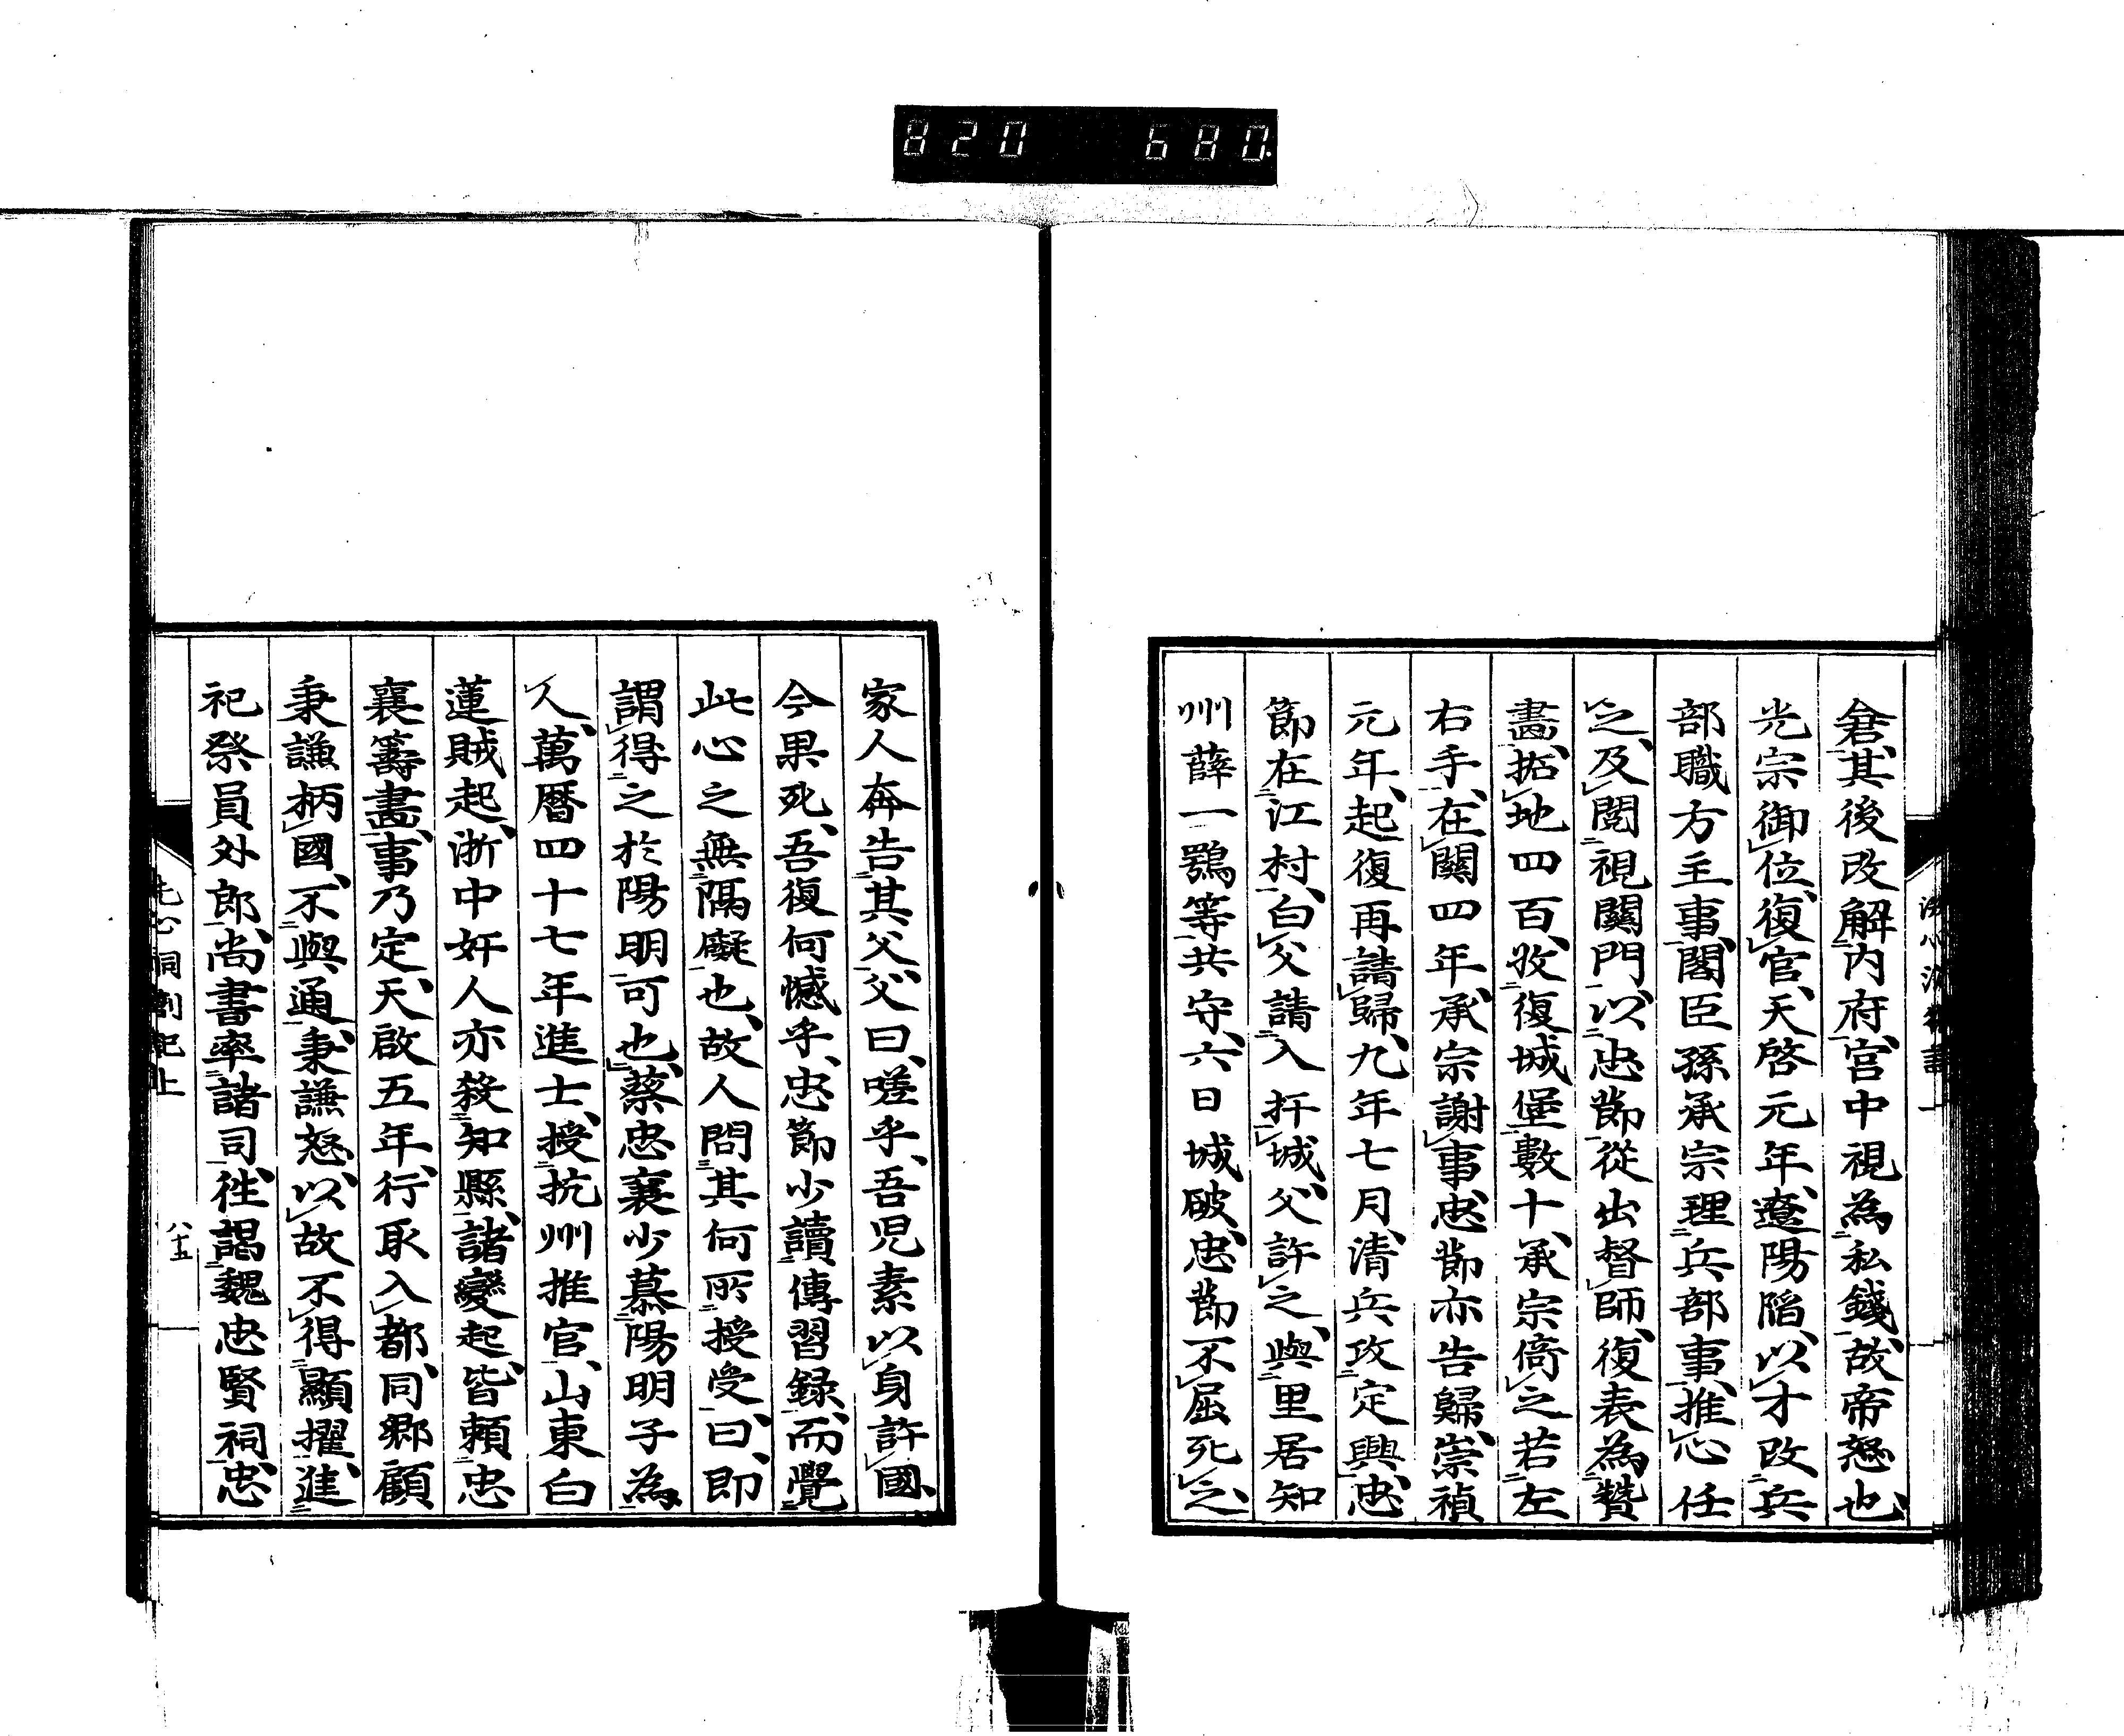 820 680
倉、其後改解内府、宮中視為私錢、故帝怒也、
光宗御位、復官、天啓元年、遼陽陷、以才改兵
部職方主事、閣臣孫承宗理兵部事、推心任
之、及閲視關門、以忠節從出督師、復表為贊
畫、拓地四百、收復城堡數十、承宗倚之若左
右手、在關四年、承宗謝事、忠節亦告歸、崇禎
元年、起復再請歸、九年七月、清兵攻定興、忠
節在江村、白父請入扞城、父許之、與里居知
州薛一鶚等共守、六日城破、忠節不屈死之、
家人奔告其父、父曰、嗟乎、吾児素以身許國、
今果死、吾復何憾乎、忠節少讀傳習録、而覺
此心之無隔礙也、故人問其何所授受、曰、即
謂得之於陽明可也、蔡忠襄少慕陽明子為
人、萬曆四十七年進士、授抗州推官、山東白
蓮賊起、浙中奸人亦殺知縣、諸變起、皆頼忠
襄籌畫、事乃定、天啟五年、行取入都、同郷顧
秉謙柄國、不與通、秉謙怒、以故不得顯擢、進
祀祭員外郎、尚書率諸司往謁魏忠賢祠、忠
洗心洞劄記上
八十五